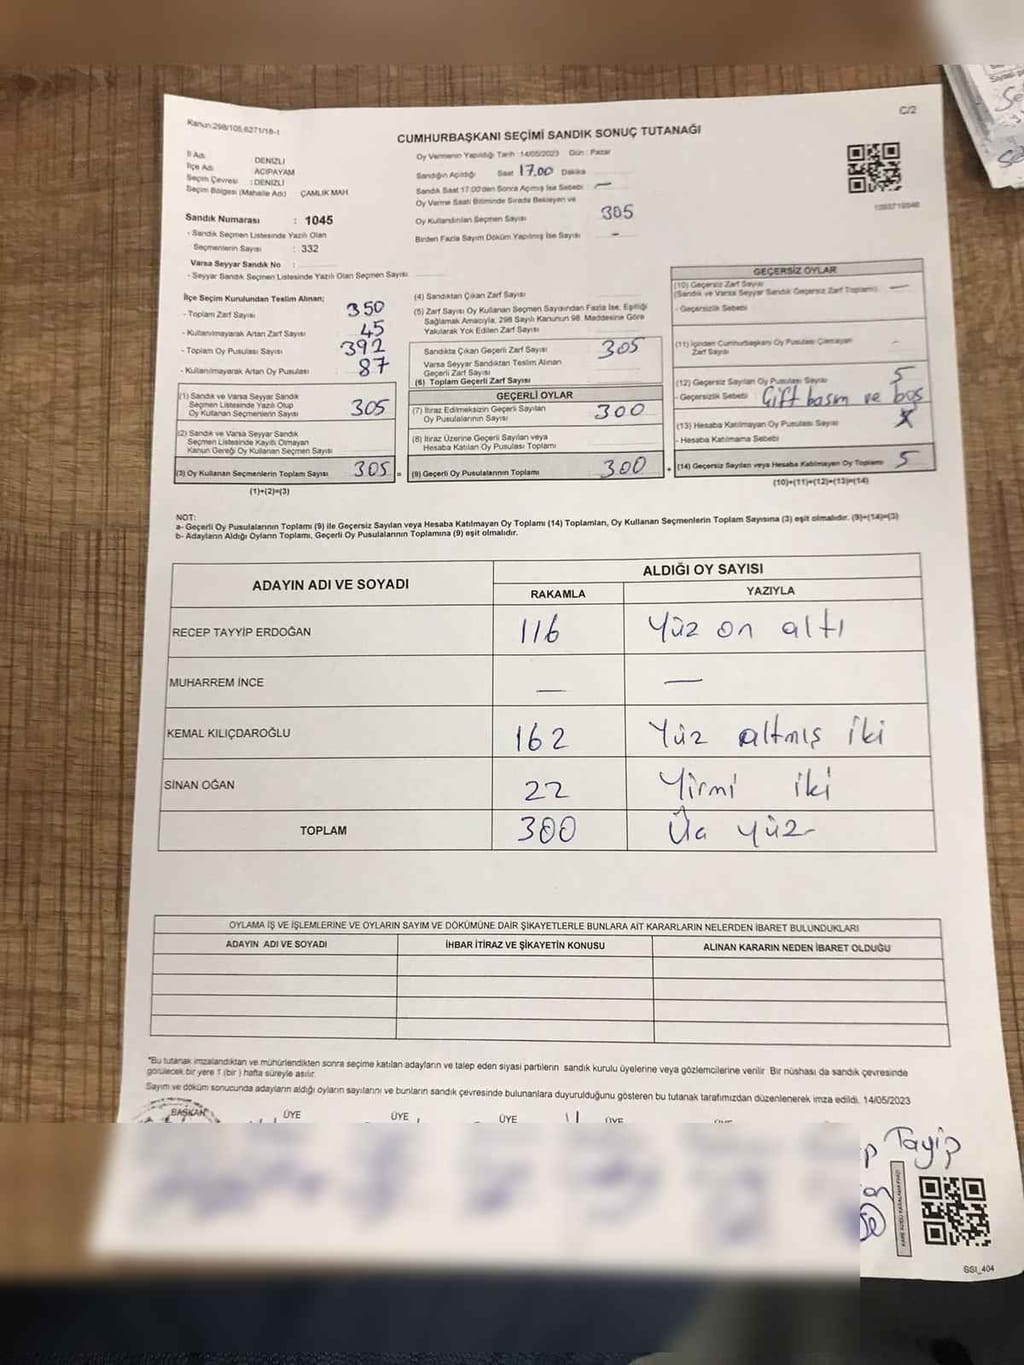 C/2
Kanun:298/105,6271/18-1
CUMHURBAŞKANI SEÇİMİ SANDIK SONUÇ TUTANAĞI
İl Adı : DENİZLİ
İlçe Adı : ACIPAYAM
Seçim Çevresi : DENİZLİ
Seçim Bölgesi (Mahalle Adı) ÇAMLIK MAH.
Sandık Numarası : 1045
- Sandık Seçmen Listesinde Yazılı Olan
Seçmenlerin Sayısı : 332
Varsa Seyyar Sandık No :
- Seyyar Sandık Seçmen Listesinde Yazılı Olan Seçmen Sayısı
Oy Vermenin Yapıldığı Tarih :14/05/2023 Gün : Pazar
Sandığın Açıldığı Saat 17.00 Dakika
Sandık Saat 17:00'den Sonra Açılmış İse Sebebi —
Oy Verme Saati Bitiminde Sırada Bekleyen ve
Oy Kullandırılan Seçmen Sayısı 305
Birden Fazla Sayım Döküm Yapılmış İse Sayısı —
İlçe Seçim Kurulundan Teslim Alınan;
- Toplam Zarf Sayısı 350
- Kullanılmayarak Artan Zarf Sayısı 45
- Toplam Oy Pusulası Sayısı 392
- Kullanılmayarak Artan Oy Pusulası 87
(1) Sandık ve Varsa Seyyar Sandık
Seçmen Listesinde Yazılı Olup
Oy Kullanan Seçmenlerin Sayısı 305
(2) Sandık ve Varsa Seyyar Sandık
Seçmen Listesinde Kayıtlı Olmayan
Kanun Gereği Oy Kullanan Seçmen Sayısı
(3) Oy Kullanan Seçmenlerin Toplam Sayısı 305 =
(1)+(2)=(3)
(4) Sandıktan Çıkan Zarf Sayısı
(5) Zarf Sayısı Oy Kullanan Seçmen Sayısından Fazla İse, Eşitliği
Sağlamak Amacıyla, 298 Sayılı Kanunun 98. Maddesine Göre
Yakılarak Yok Edilen Zarf Sayısı
Sandıkta Çıkan Geçerli Zarf Sayısı 305
Varsa Seyyar Sandıktan Teslim Alınan
Geçerli Zarf Sayısı
(6) Toplam Geçerli Zarf Sayısı
GEÇERLİ OYLAR
(7) İtiraz Edilmeksizin Geçerli Sayılan
Oy Pusulalarının Sayısı 300
(8) İtiraz Üzerine Geçerli Sayılan veya
Hesaba Katılan Oy Pusulası Toplamı
(9) Geçerli Oy Pusulalarının Toplamı 300 +
GEÇERSİZ OYLAR
(10) Geçersiz Zarf Sayısı
(Sandık ve Varsa Seyyar Sandık Geçersiz Zarf Toplamı) —
- Geçersizlik Sebebi
(11) İçinden Cumhurbaşkanı Oy Pusulası Çıkmayan
Zarf Sayısı
(12) Geçersiz Sayılan Oy Pusulası Sayısı 5
- Geçersizlik Sebebi Çift basım ve boş
(13) Hesaba Katılmayan Oy Pusulası Sayısı
- Hesaba Katılmama Sebebi
(14) Geçersiz Sayılan veya Hesaba Katılmayan Oy Toplamı 5
(10)+(11)+(12)+(13)=(14)
NOT:
a- Geçerli Oy Pusulalarının Toplamı (9) ile Geçersiz Sayılan veya Hesaba Katılmayan Oy Toplamı (14) Toplamları, Oy Kullanan Seçmenlerin Toplam Sayısına (3) eşit olmalıdır. (9)+(14)=(3)
b- Adayların Aldığı Oyların Toplamı, Geçerli Oy Pusulalarının Toplamına (9) eşit olmalıdır.
ADAYIN ADI VE SOYADI
ALDIĞI OY SAYISI
RAKAMLA YAZIYLA
RECEP TAYYİP ERDOĞAN 116 Yüz on altı
MUHARREM İNCE — —
KEMAL KILIÇDAROĞLU 162 Yüz altmış iki
SİNAN OĞAN 22 Yirmi iki
TOPLAM 300 Üç yüz
OYLAMA İŞ VE İŞLEMLERİNE VE OYLARIN SAYIM VE DÖKÜMÜNE DAİR ŞİKAYETLERLE BUNLARA AİT KARARLARIN NELERDEN İBARET BULUNDUKLARI
ADAYIN ADI VE SOYADI İHBAR İTİRAZ VE ŞİKAYETİN KONUSU ALINAN KARARIN NEDEN İBARET OLDUĞU
"Bu tutanak imzalandıktan ve mühürlendikten sonra seçime katılan adayların ve talep eden siyasi partilerin sandık kurulu üyelerine veya gözlemcilerine verilir. Bir nüshası da sandık çevresinde
görülecek bir yere 1 (bir) hafta süreyle asılır.
Sayım ve döküm sonucunda adayların aldığı oyların sayılarını ve bunların sandık çevresinde bulunanlara duyurulduğunu gösteren bu tutanak tarafımızdan düzenlenerek imza edildi. 14/05/2023
BAŞKAN ÜYE ÜYE ÜYE ÜYE
Tayip
SSI_404